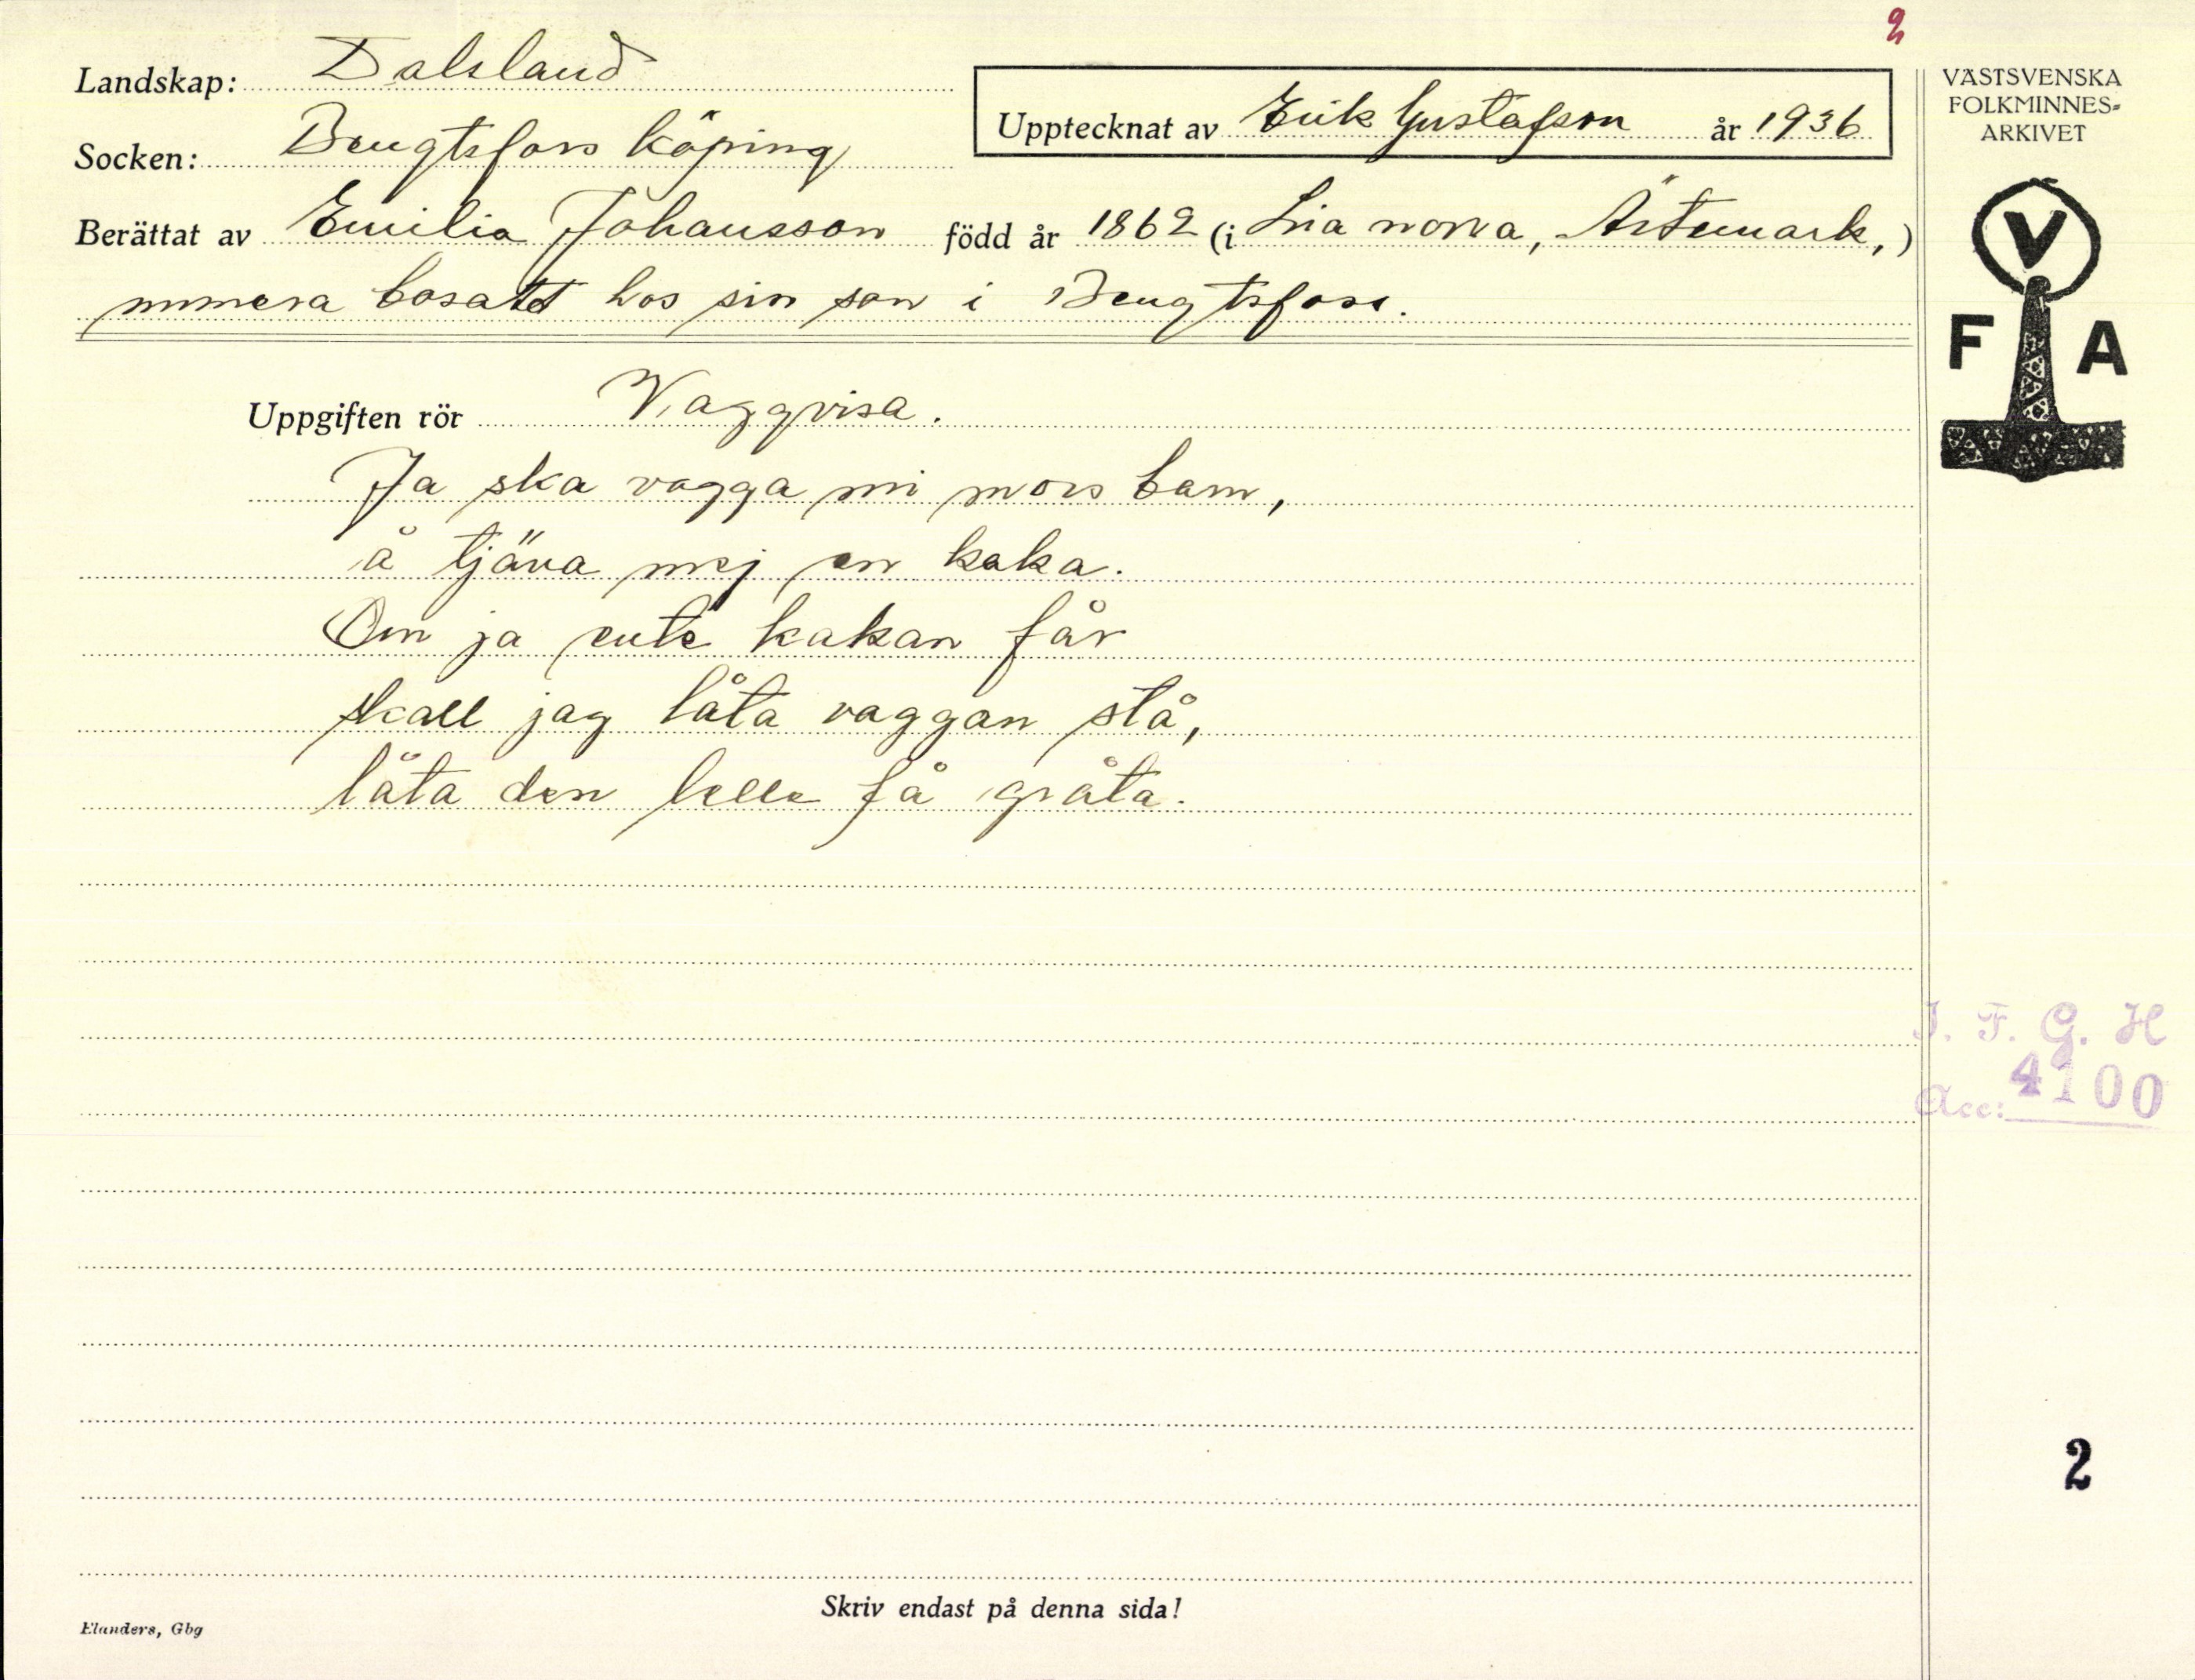 2
Landskap: Dalsland
Socken: Bengtsfors köping
Upptecknat av Erik Gustafson år 1936
Berättat av Emilia Johansson född år 1862 (i Lia norra, Ärtemark,)
numera bosatt hos sin son i Bengtsfors.
Uppgiften rör Vaggvisa.
Ja ska vagga mi mors barn,
å tjäna mej en kaka.
Om ja ente kakan får
skall jag låta vaggan stå,
låta den lelle få gråta.
VÄSTSVENSKA
FOLKMINNES-
ARKIVET
V
F A
I. F. G. H
Acc: 4100
2
Skriv endast på denna sida!
Elanders, Gbg